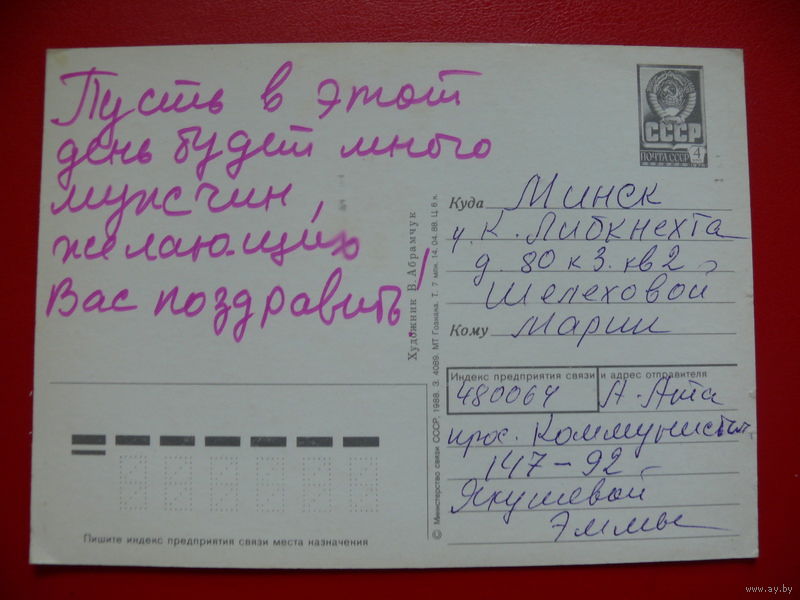 Пусть в этот
день будет много
мужчин,
желающих
Вас поздравить!
СССР
ПОЧТА СССР 4
Куда Минск
у. К. Либкнехта
д. 80 к 3. кв 2
Шелеховой
Кому Марии
Индекс предприятия связи и адрес отправителя
480064 А-Ата
прос. Коммунистич
147-92
Якушевой
Эммы
Художник В. Абрамчук
© Министерство связи СССР, 1988. З. 4089. МТ Гознака. Т. 7 млн. 14. 04. 88. Ц. 6 к.
Пишите индекс предприятия связи места назначения
www.ay.by